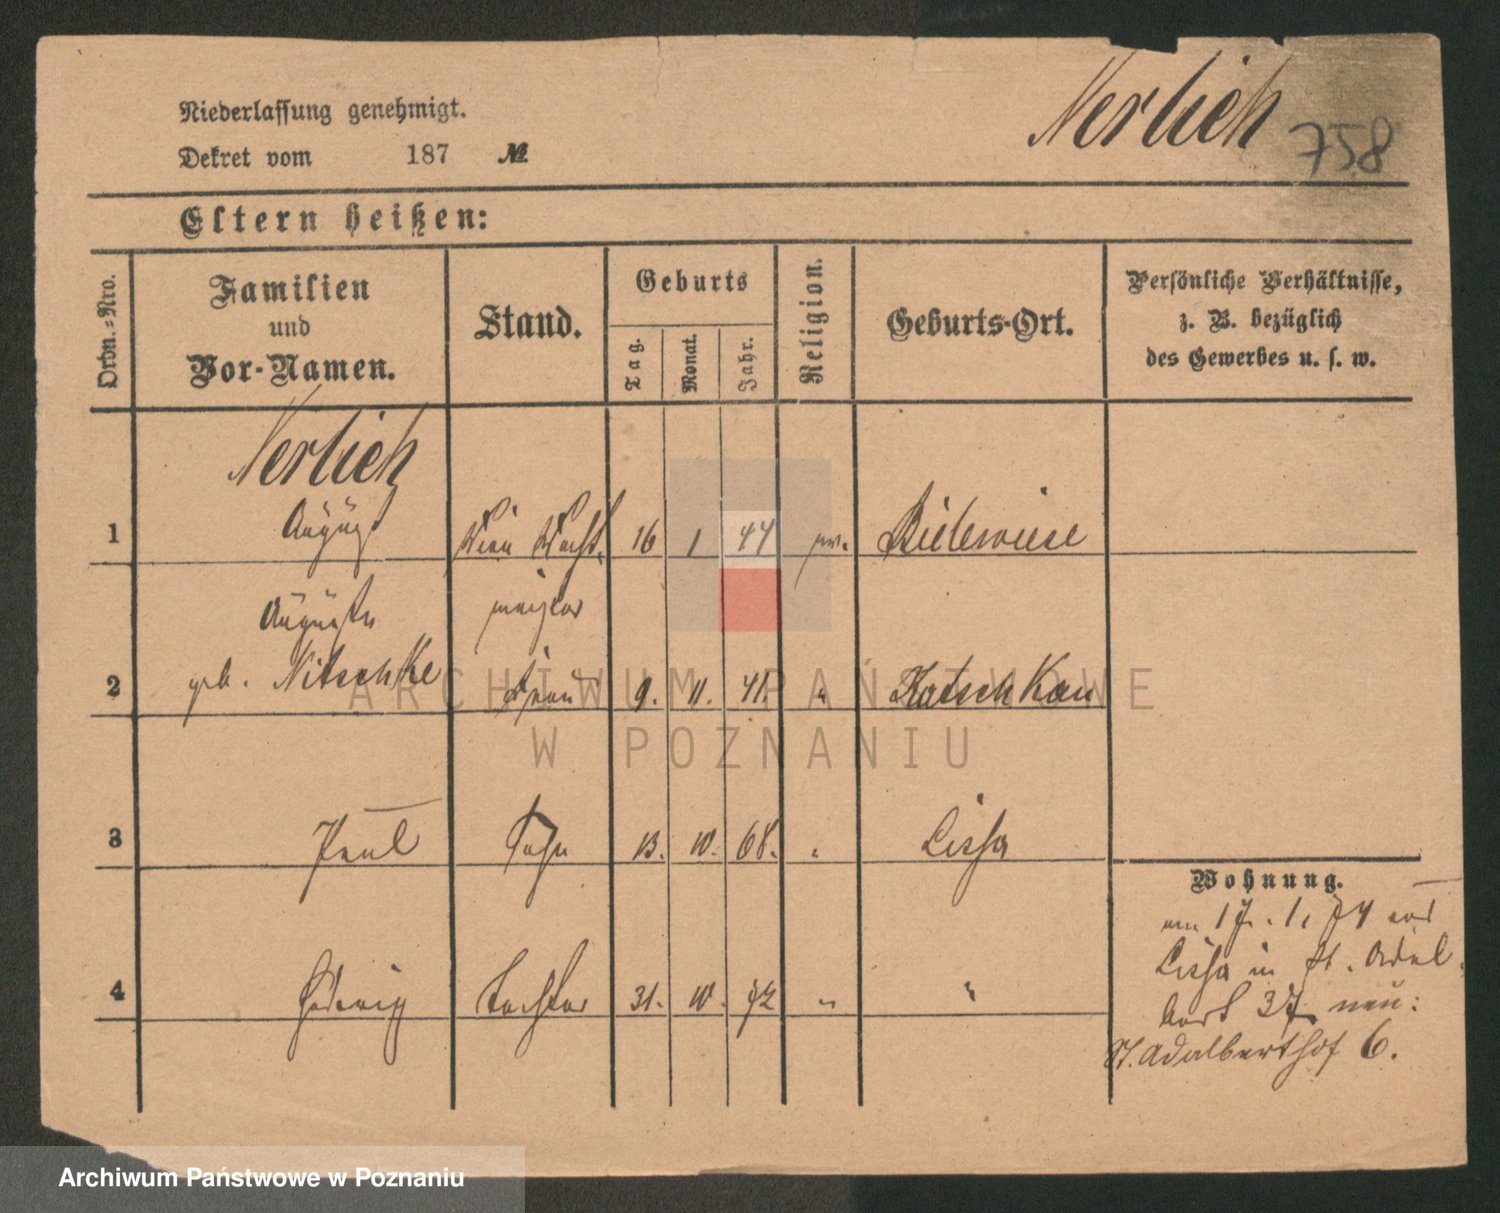 Nerlich 758
Niederlassung genehmigt.
Dekret vom 187 №
Eltern heißen:
Ordn.=Nro.
Familien
und
Vor-Namen.
Stand.
Geburts
Tag.
Monat.
Jahr.
Religion.
Geburts-Ort.
Persönliche Verhältnisse,
z. B. bezüglich
des Gewerbes u. s. w.
Nerlich
1 August 16 1 44 Bielewiese
Auguste meister
2 geb. Nitschke Frau 9. 11. 41. " Katschkau
3 Paul Sohn 13. 10. 68. " Lissa
4 Hedwig Tochter 31. 10. 72 " "
Wohnung.
am 17. 1. 74 aus
Lissa in St. Adal
bert 37 neu:
St. Adalberthof 6.
ARCHIWUM PAŃSTWOWE
W POZNANIU
Archiwum Państwowe w Poznaniu